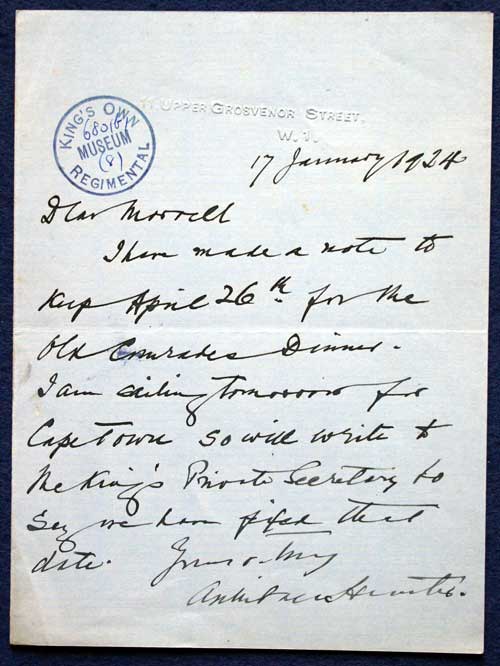 KING'S OWN
6801(B)
MUSEUM
(8)
REGIMENTAL
UPPER GROSVENOR STREET.
W. 1.
17 January 1924
Dear Morrell
I have made a note to
keep April 26th for the
Old Comrades Dinner.
I am sailing tomorrow for
Cape Town so will write to
the King's Private Secretary to
say we have fixed that
date. Yours
Archibald Hunter.